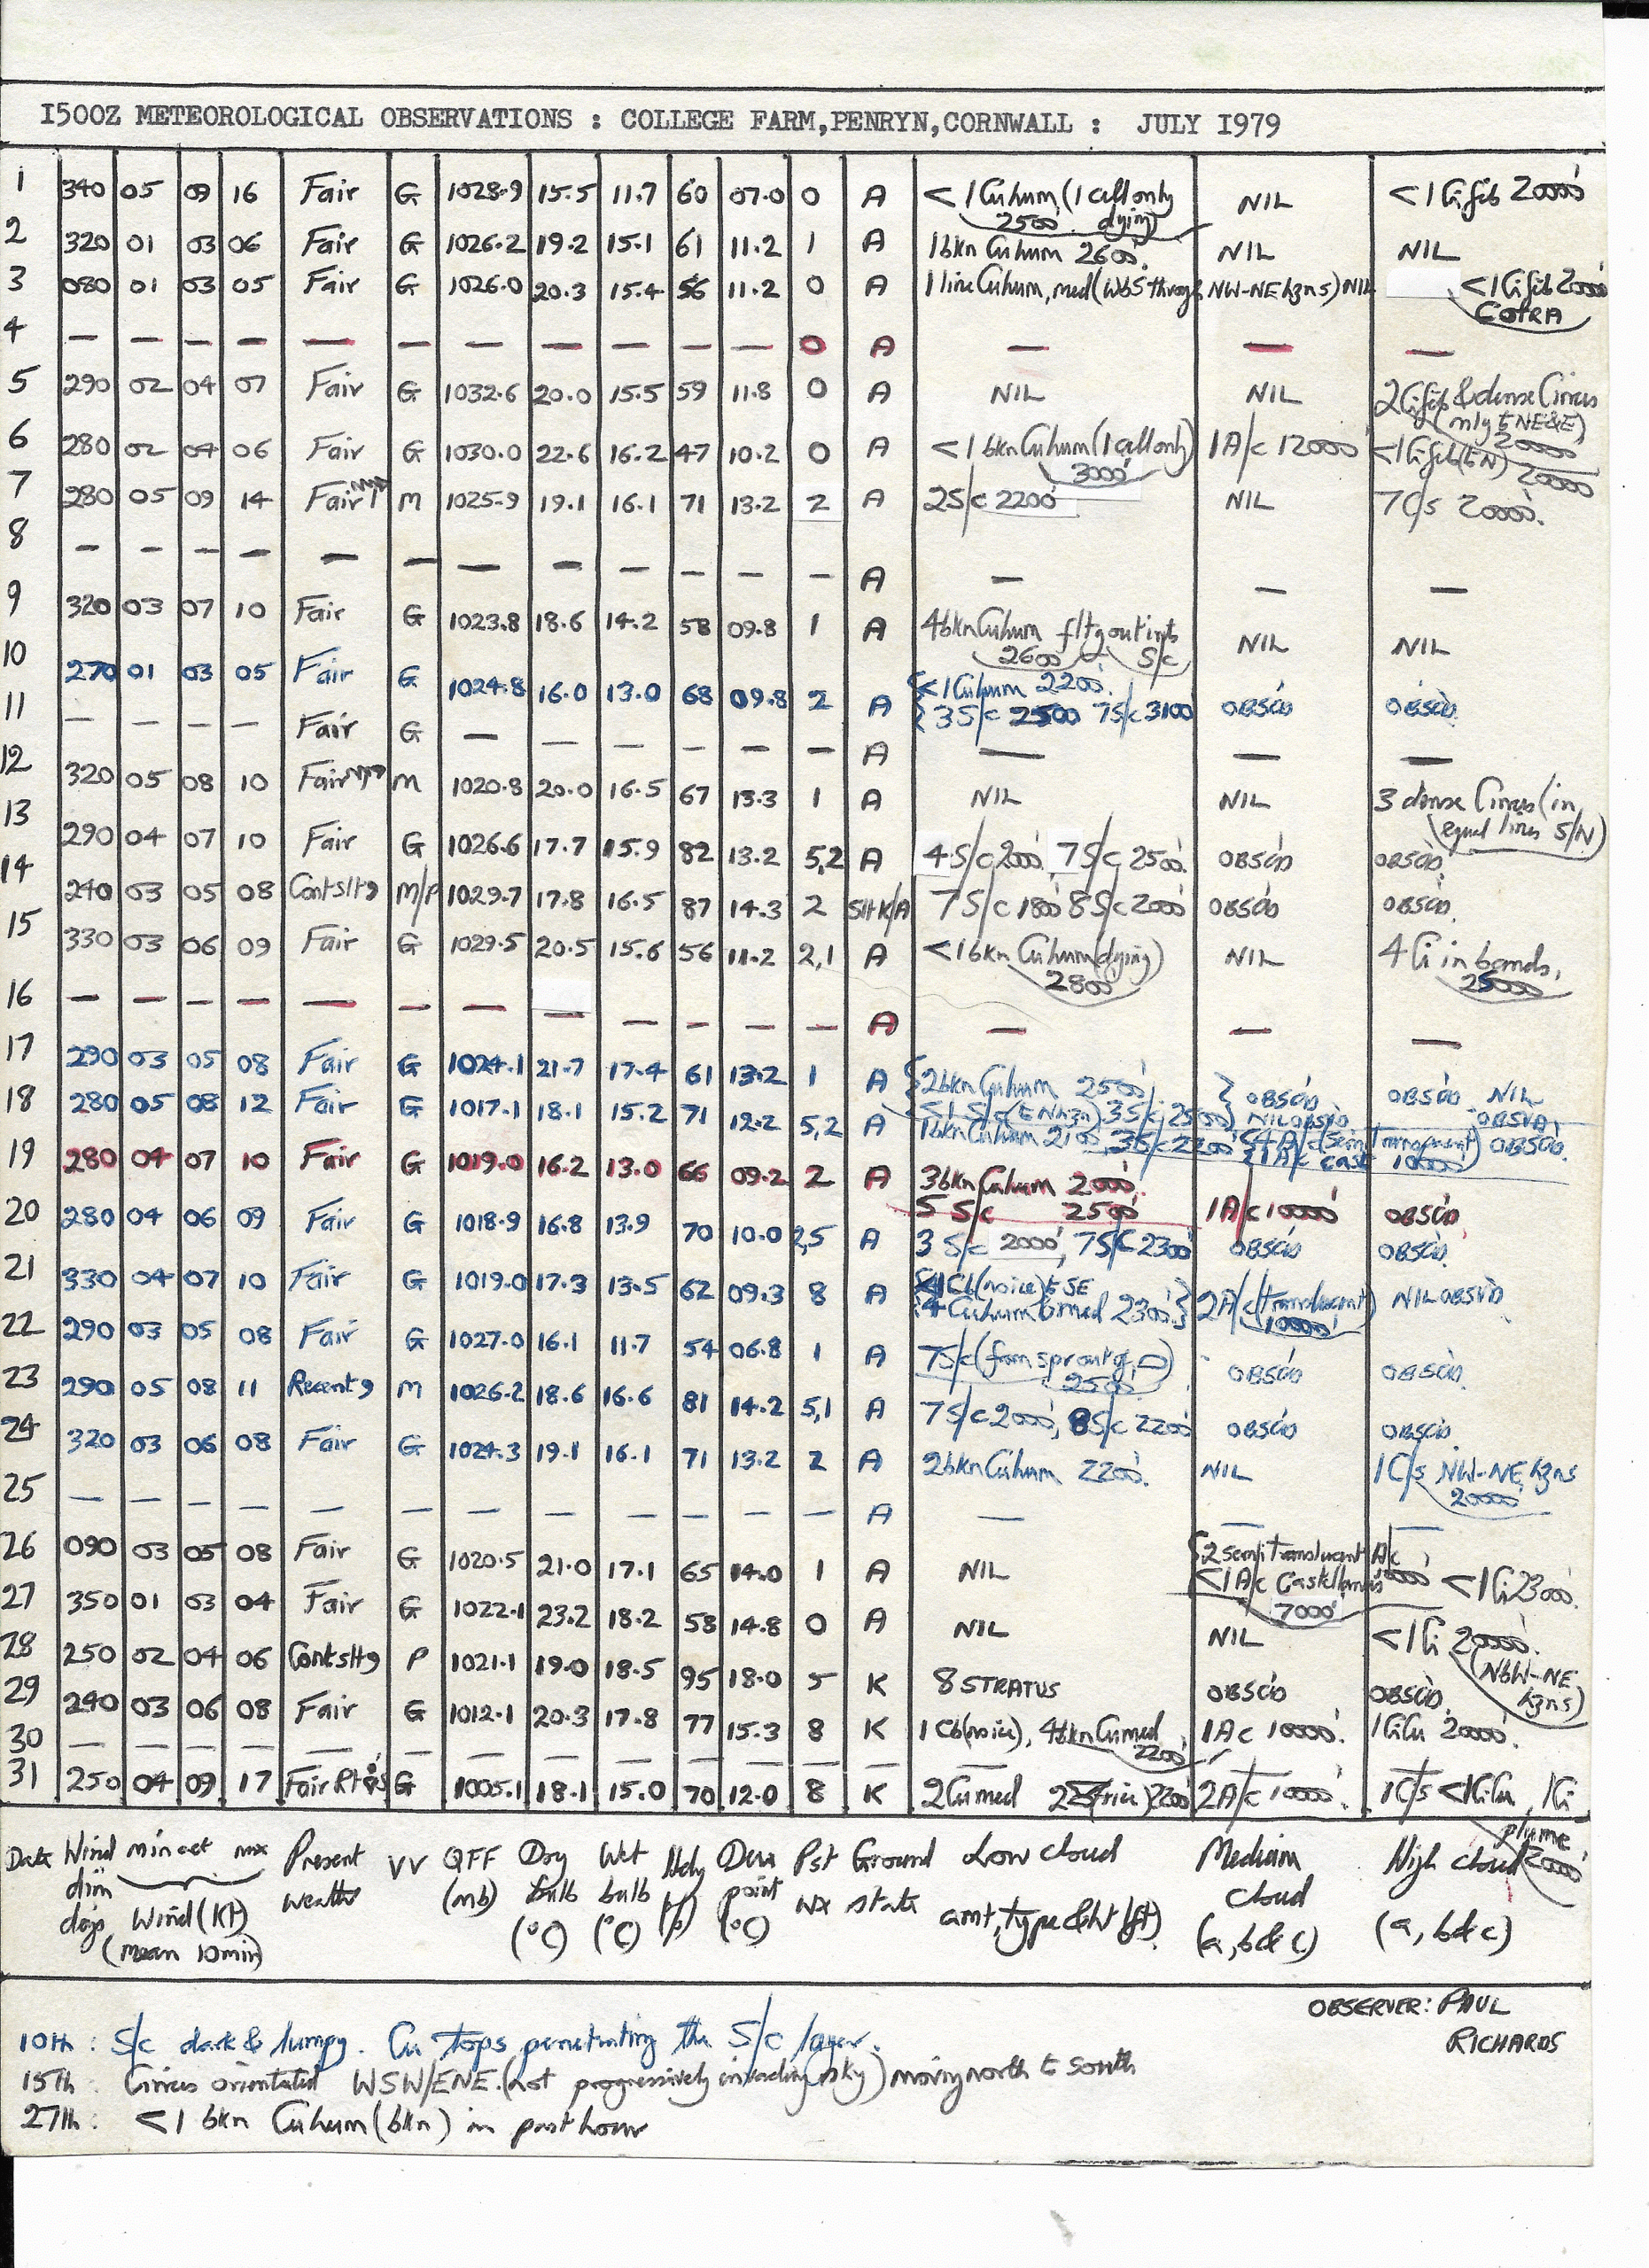 1500Z METEOROLOGICAL OBSERVATIONS : COLLEGE FARM,PENRYN,CORNWALL : JULY 1979
1 340 05 09 16 Fair G 1028.9 15.5 11.7 60 07.0 0 A <1 Cuhum (1 cell only dying) 2500' NIL <1 Cifib 20000'
2 320 01 03 06 Fair G 1026.2 19.2 15.1 61 11.2 1 A 1bkn Cuhum 2600' NIL NIL
3 080 01 03 05 Fair G 1026.0 20.3 15.4 56 11.2 0 A 1 line Cuhum, med (WbS through NW-NE hzns) NIL <1 Cifib 20000' COTRA
4 — — — — — — — — — — — 0 A — — —
5 290 02 04 07 Fair G 1032.6 20.0 15.5 59 11.8 0 A NIL NIL 2 Cifib & dense Cirrus (only to NE&E) 20000'
6 280 02 04 06 Fair G 1030.0 22.6 16.2 47 10.2 0 A <1 bkn Cuhum (1 cell only) 3000' 1A/c 12000' <1 Cifib (to N) 20000'
7 280 05 09 14 Fair M 1025.9 19.1 16.1 71 13.2 2 A 2S/c 2200' NIL 7C/s 20000'.
8 — — — — — — — — — — — — A — — —
9 320 03 07 10 Fair G 1023.8 18.6 14.2 58 09.8 1 A 4bkn Cuhum fltg out into S/c 2600' NIL NIL
10 270 01 03 05 Fair G 1024.8 16.0 13.0 68 09.8 2 A <1 Cuhum 2200'. 3S/c 2500 7S/c 3100' OBSC'D OBSC'D.
11 — — — — Fair G — — — — — — A — — —
12 320 05 08 10 Fair M 1020.8 20.0 16.5 67 13.3 1 A NIL NIL 3 dense Cirrus (in equal lines S/N)
13 290 04 07 10 Fair G 1026.6 17.7 15.9 82 13.2 5,2 A 4S/c 2000', 7S/c 2500'. OBSC'D OBSC'D.
14 240 03 05 08 Contslt9 M/P 1029.7 17.8 16.5 87 14.3 2 SltK/A 7S/c 1800' 8S/c 2000' OBSC'D OBSC'D.
15 330 03 06 09 Fair G 1029.5 20.5 15.6 56 11.2 2,1 A <1 bkn Cuhum (dying) 2800' NIL 4 Ci in bands, 25000'
16 — — — — — — — — — — — — A — — —
17 290 03 05 08 Fair G 1024.1 21.7 17.4 61 13.2 1 A 2bkn Cuhum 2500' <1 S/c (to N hzn) NIL OBSV'D
18 280 05 08 12 Fair G 1017.1 18.1 15.2 71 12.2 5,2 A 1bkn Cuhum 2100', 3S/c 2200' 4A/c (semi transparent) <1A/c cast 10000' OBSC'D.
19 280 04 07 10 Fair G 1019.0 16.2 13.0 66 09.2 2 A 3bkn Cuhum 2000'. 5 S/c 2500' 1A/c 10000' OBSC'D
20 280 04 06 09 Fair G 1018.9 16.8 13.9 70 10.0 2,5 A 3 S/c 2000', 7S/c 2300' OBSC'D OBSC'D.
21 330 04 07 10 Fair G 1019.0 17.3 13.5 62 09.3 8 A <1 Cb (no ice) to SE 4 Cuhum & med 2300' 2A/c (translucent) 10000' NIL OBSV'D
22 290 03 05 08 Fair G 1027.0 16.1 11.7 54 06.8 1 A 7S/c (from sprout of) 2500' OBSC'D OBSC'D.
23 290 05 08 11 Recent 9 M 1026.2 18.6 16.6 81 14.2 5,1 A 7S/c 2000', 8S/c 2200' OBSC'D OBSC'D
24 320 03 06 08 Fair G 1024.3 19.1 16.1 71 13.2 2 A 2bkn Cuhum 2200'. NIL 1C/s NW-NE hzns 20000'
25 — — — — — — — — — — — — A — — —
26 090 03 05 08 Fair G 1020.5 21.0 17.1 65 14.0 1 A NIL 2 semi translucent A/c <1 A/c Castellanus 7000' <1 Ci 23000'.
27 350 01 03 04 Fair G 1022.1 23.2 18.2 58 14.8 0 A NIL NIL <1 Ci 20000'. (NbW-NE hzns)
28 250 02 04 06 Contslt9 P 1021.1 19.0 18.5 95 18.0 5 K 8 STRATUS OBSC'D OBSC'D.
29 240 03 06 08 Fair G 1012.1 20.3 17.8 77 15.3 8 K 1 Cb (no ice), 4bkn Cumed 2200' 1Ac 10000'. 1CiCu 20000'.
30 — — — — — — — — — — — — — — — —
31 250 04 09 17 Fair G 1005.1 18.1 15.0 70 12.0 8 K 2 Cumed 2200' 2A/c 10000'. 1C/s <1CiCu, 1Ci plume 20000'
Date Wind dirn degs min act mx Wind (Kt) (mean 10min) Present weather VV QFF (mb) Dry bulb (°C) Wet bulb (°C) Hdy (%) Dew point (°C) Pst wx Ground state Low cloud amt, type & ht (ft). Medium cloud (a, b & c) High cloud (a, b & c)
OBSERVER: PAUL
RICHARDS
10th : S/c dark & lumpy. Cu tops penetrating the S/c layer.
15th : Cirrus orientated WSW/ENE. (not progressively invading sky) moving north to south
27th : <1 bkn Cuhum (bkn) in past hour